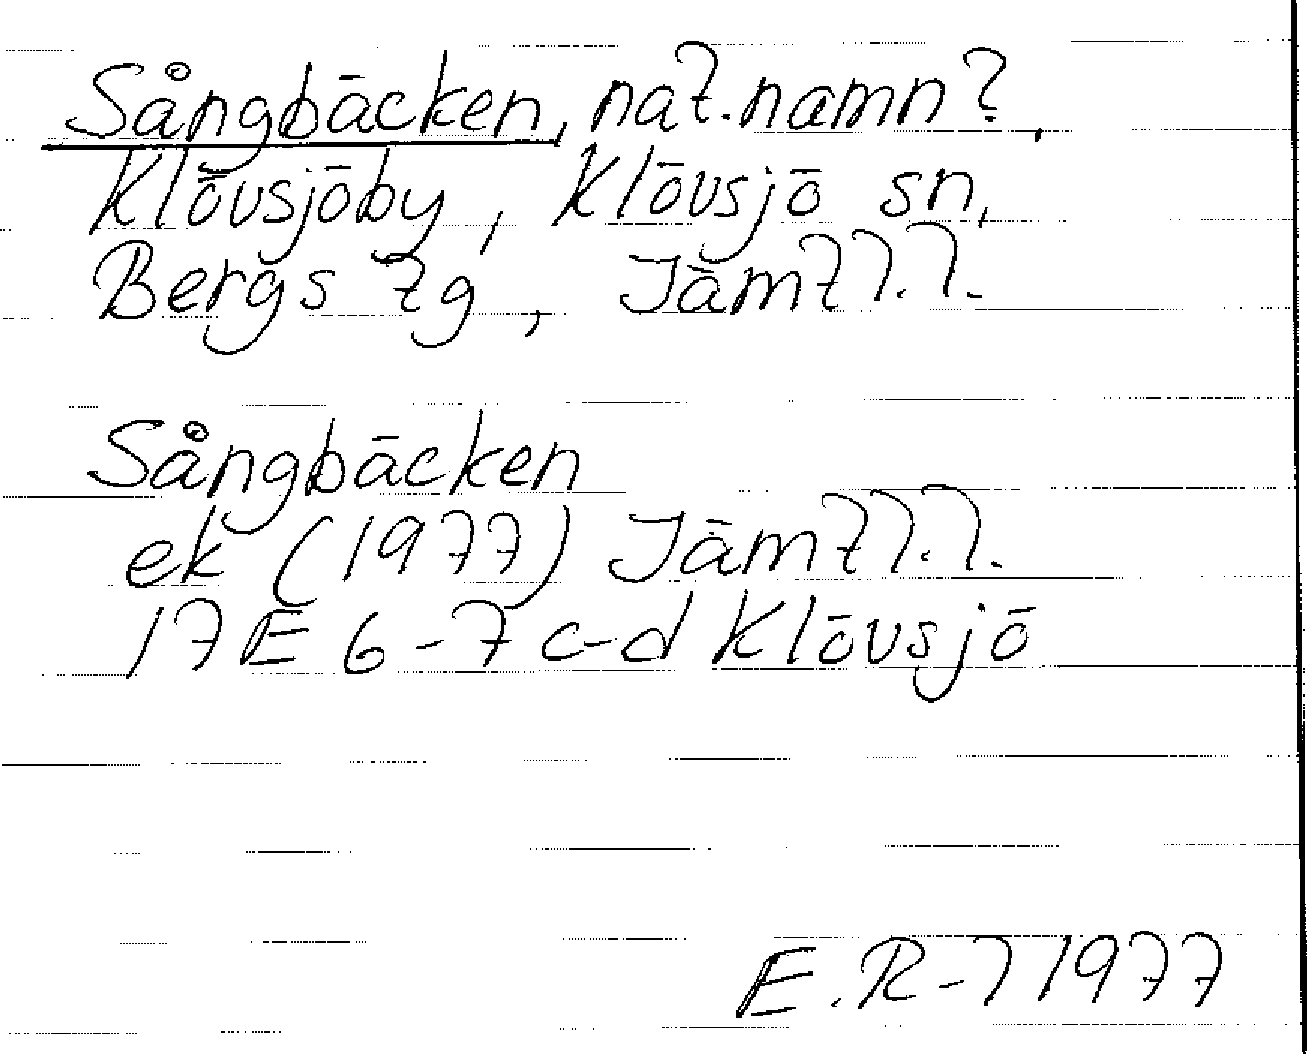 Sångbäcken, nat.namn?,
Klövsjöby, Klövsjö sn,
Bergs tg, Jämtl.l.
Sångbäcken
ek (1977) Jämtl.l.
17E 6-7 c-d Klövsjö
E.R-l 1977